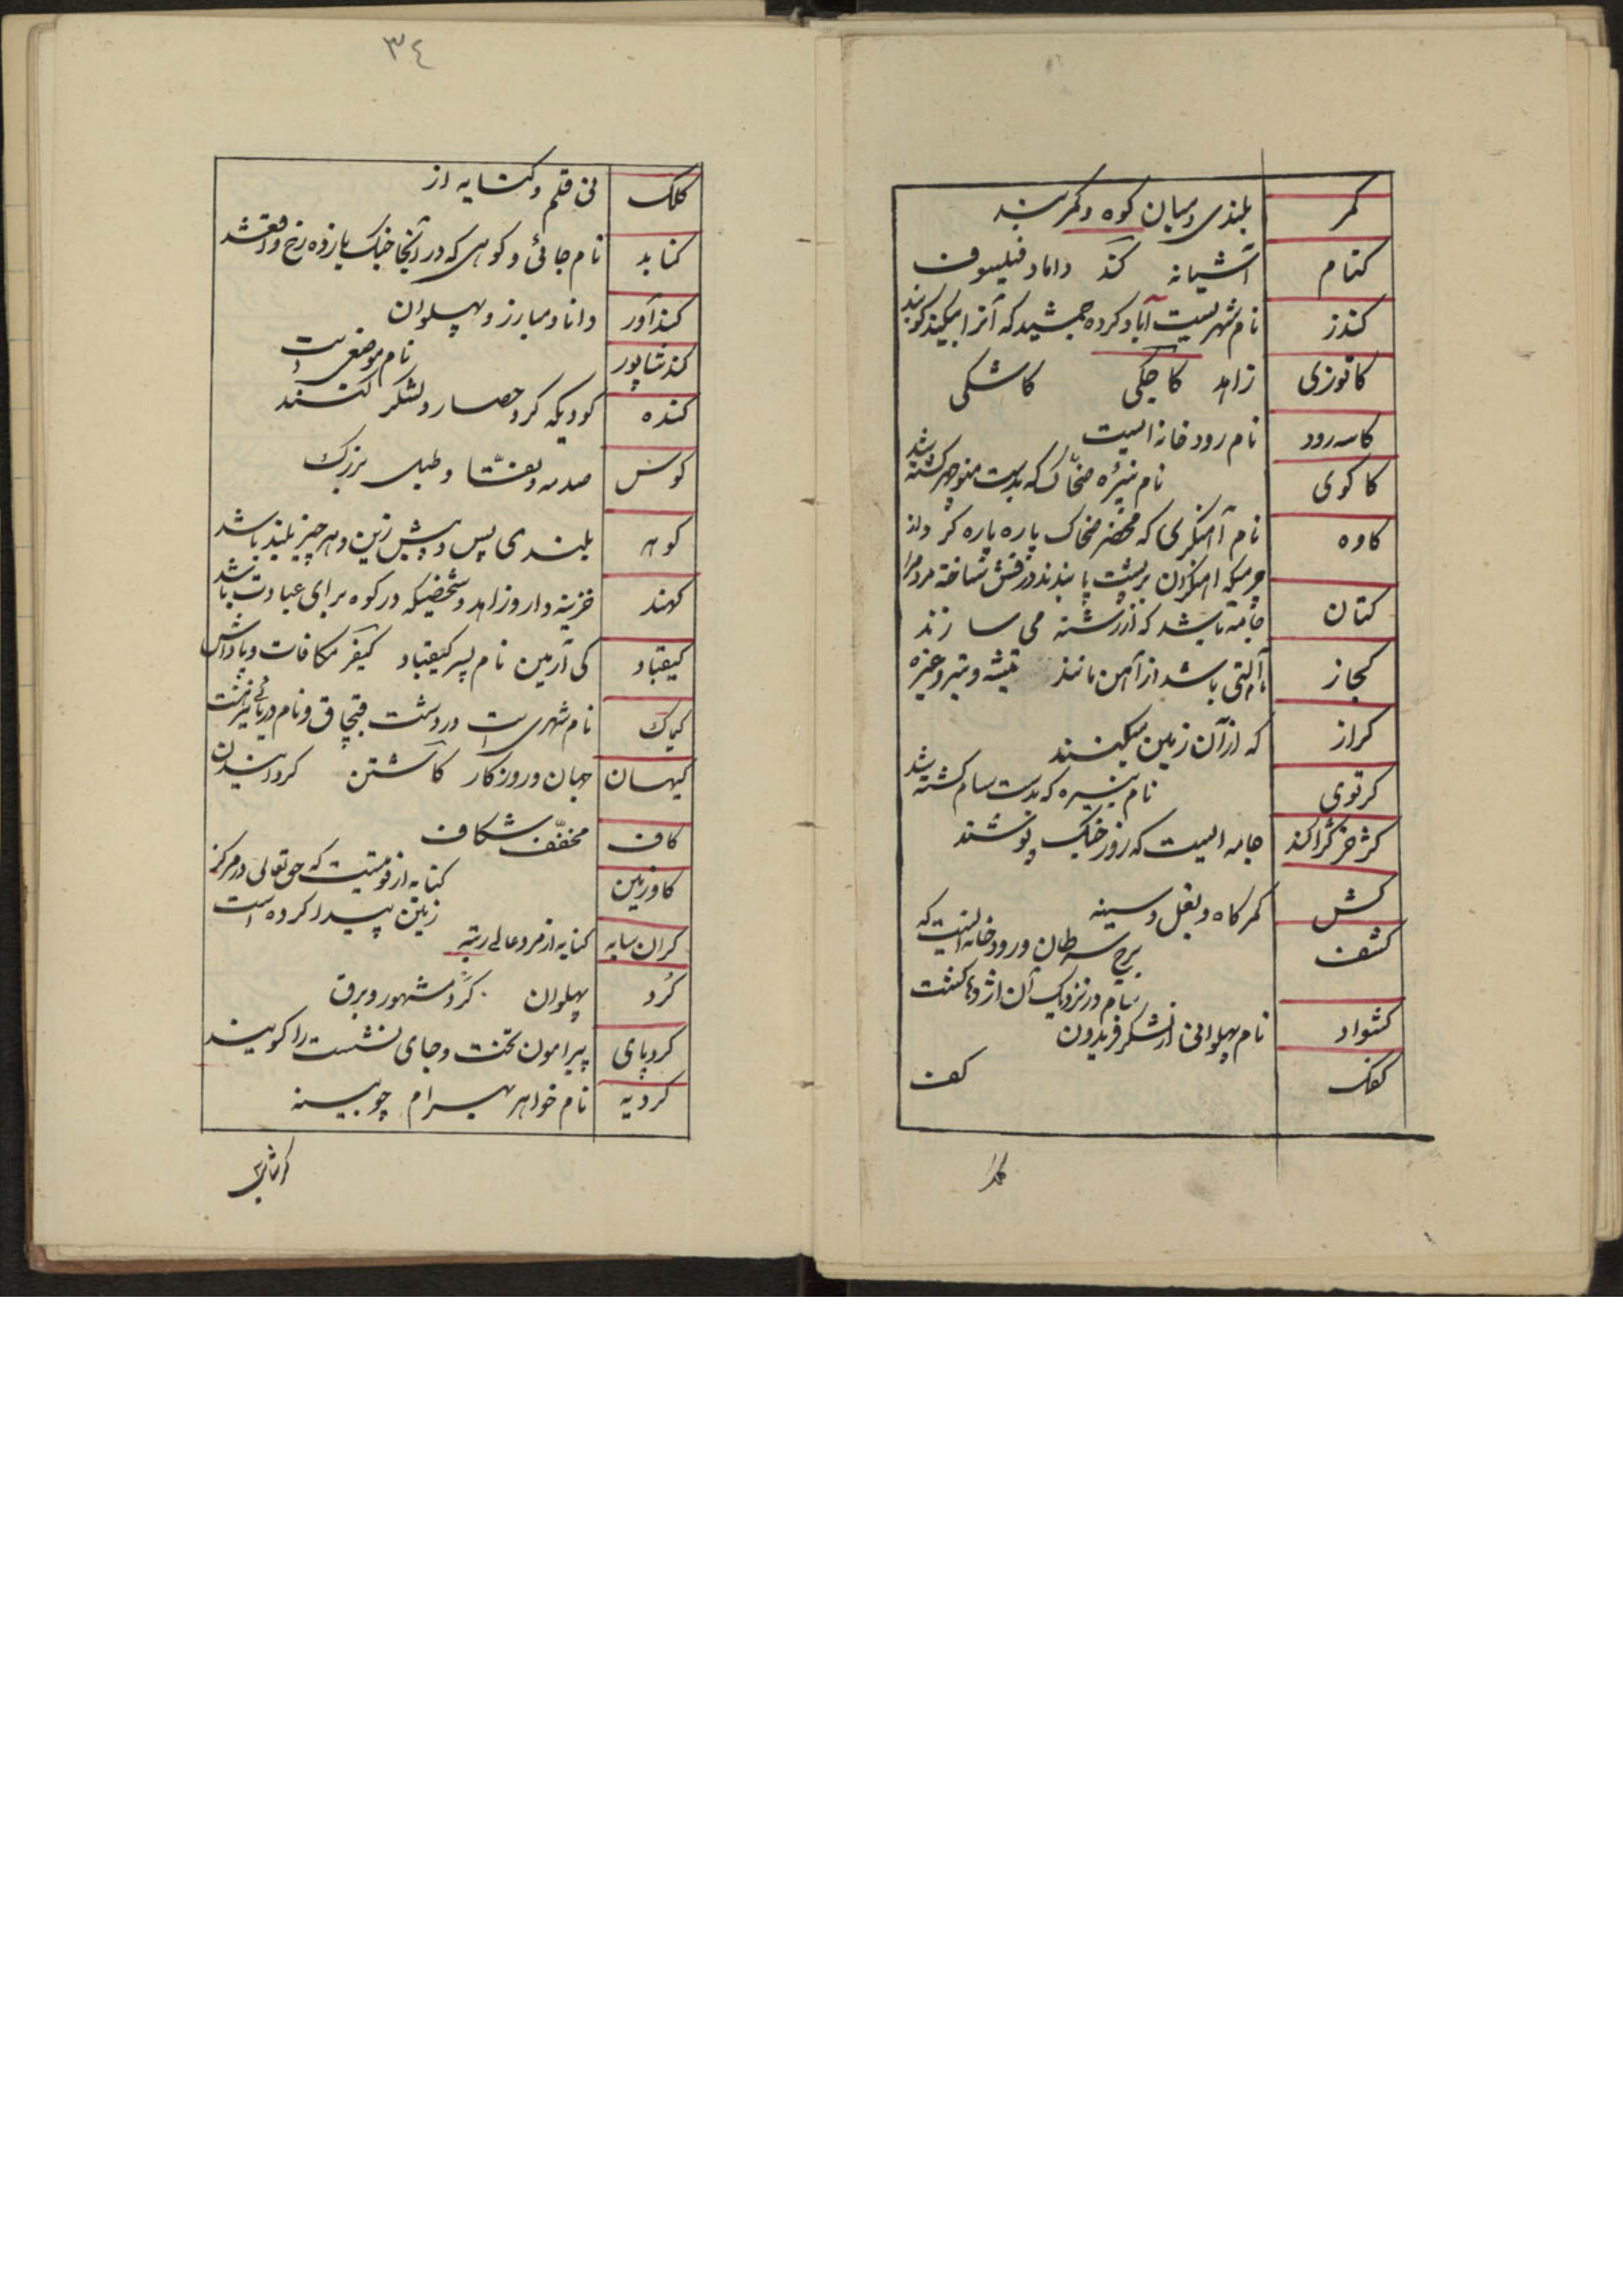 کمر بلندی و میان کوه و کمر بند
کنام آشیانه کند داماد فیلسوف
کندز نام شهریست آباد کرده جمشید که آنرا بیکند گویند
کاتوزی زاهد کاجکی کاشکی
کاسه رود نام رود خانه ایست
کاکوی نام نبیره ضحّاک که بدست منوچهر کشته شد
کاوه نام آهنگری که محضر ضحاک پاره پاره کرد
چرمیکه آهنگران بر پشت پا بندند درفش ساخته
کتان جامه باشد که از رشته می سازند
کجاز آلتی باشد از آهن مانند تیشه و تبر و غیره
کراز که از آن زمین میکنند
کرتوی نام نبیره که بدست سام کشته شد
کژ خز کژاکند جامه ایست که روز جنگ پوشند
کش کمر کاه و بغل و سینه
کشف برج سرطان و رود خانه ایست که
سام در نزدیک آن اژدها کشت
کشواد نام پهلوانی از لشکر فریدون
کفک کف
٣٤
کلک نی قلم و کنایه از
کنابد نام جائی و کوهی که در آنجا جنک یازده رخ واقعشد
کندآور دانا و مبارز و پهلوان
کندشاپور نام موضعی است
کنده کودیکه کرد حصار و لشکر کنند
کوس صدمه و نقشا و طبل بزرک
کوهه بلندی پس و پیش زین و هر چیز بلند باشد
کهبد خزینه دار و زاهد و شخصیکه در کوه برای عبادت باشد
کیقباد کی آرمین نام پسر کیقباد کیفر مکافات و پاداش
کیماک نام شهریست در دشت قبچاق و نام دریائی نیز هست
کیهان جهان و روزکار کاشتن کردانیدن
کاف مخفّف شکاف
کاو زمین کنایه از قوتیست که حق تعالی در مرکز
زمین پیدا کرده است
کران سایه کنایه از مرد عالی رتبه
کرد پهلوان کرد مشهور و برق
کردپای پیرامون تخت و جای نشست را کویند
کردیه نام خواهر بهرام چوبینه